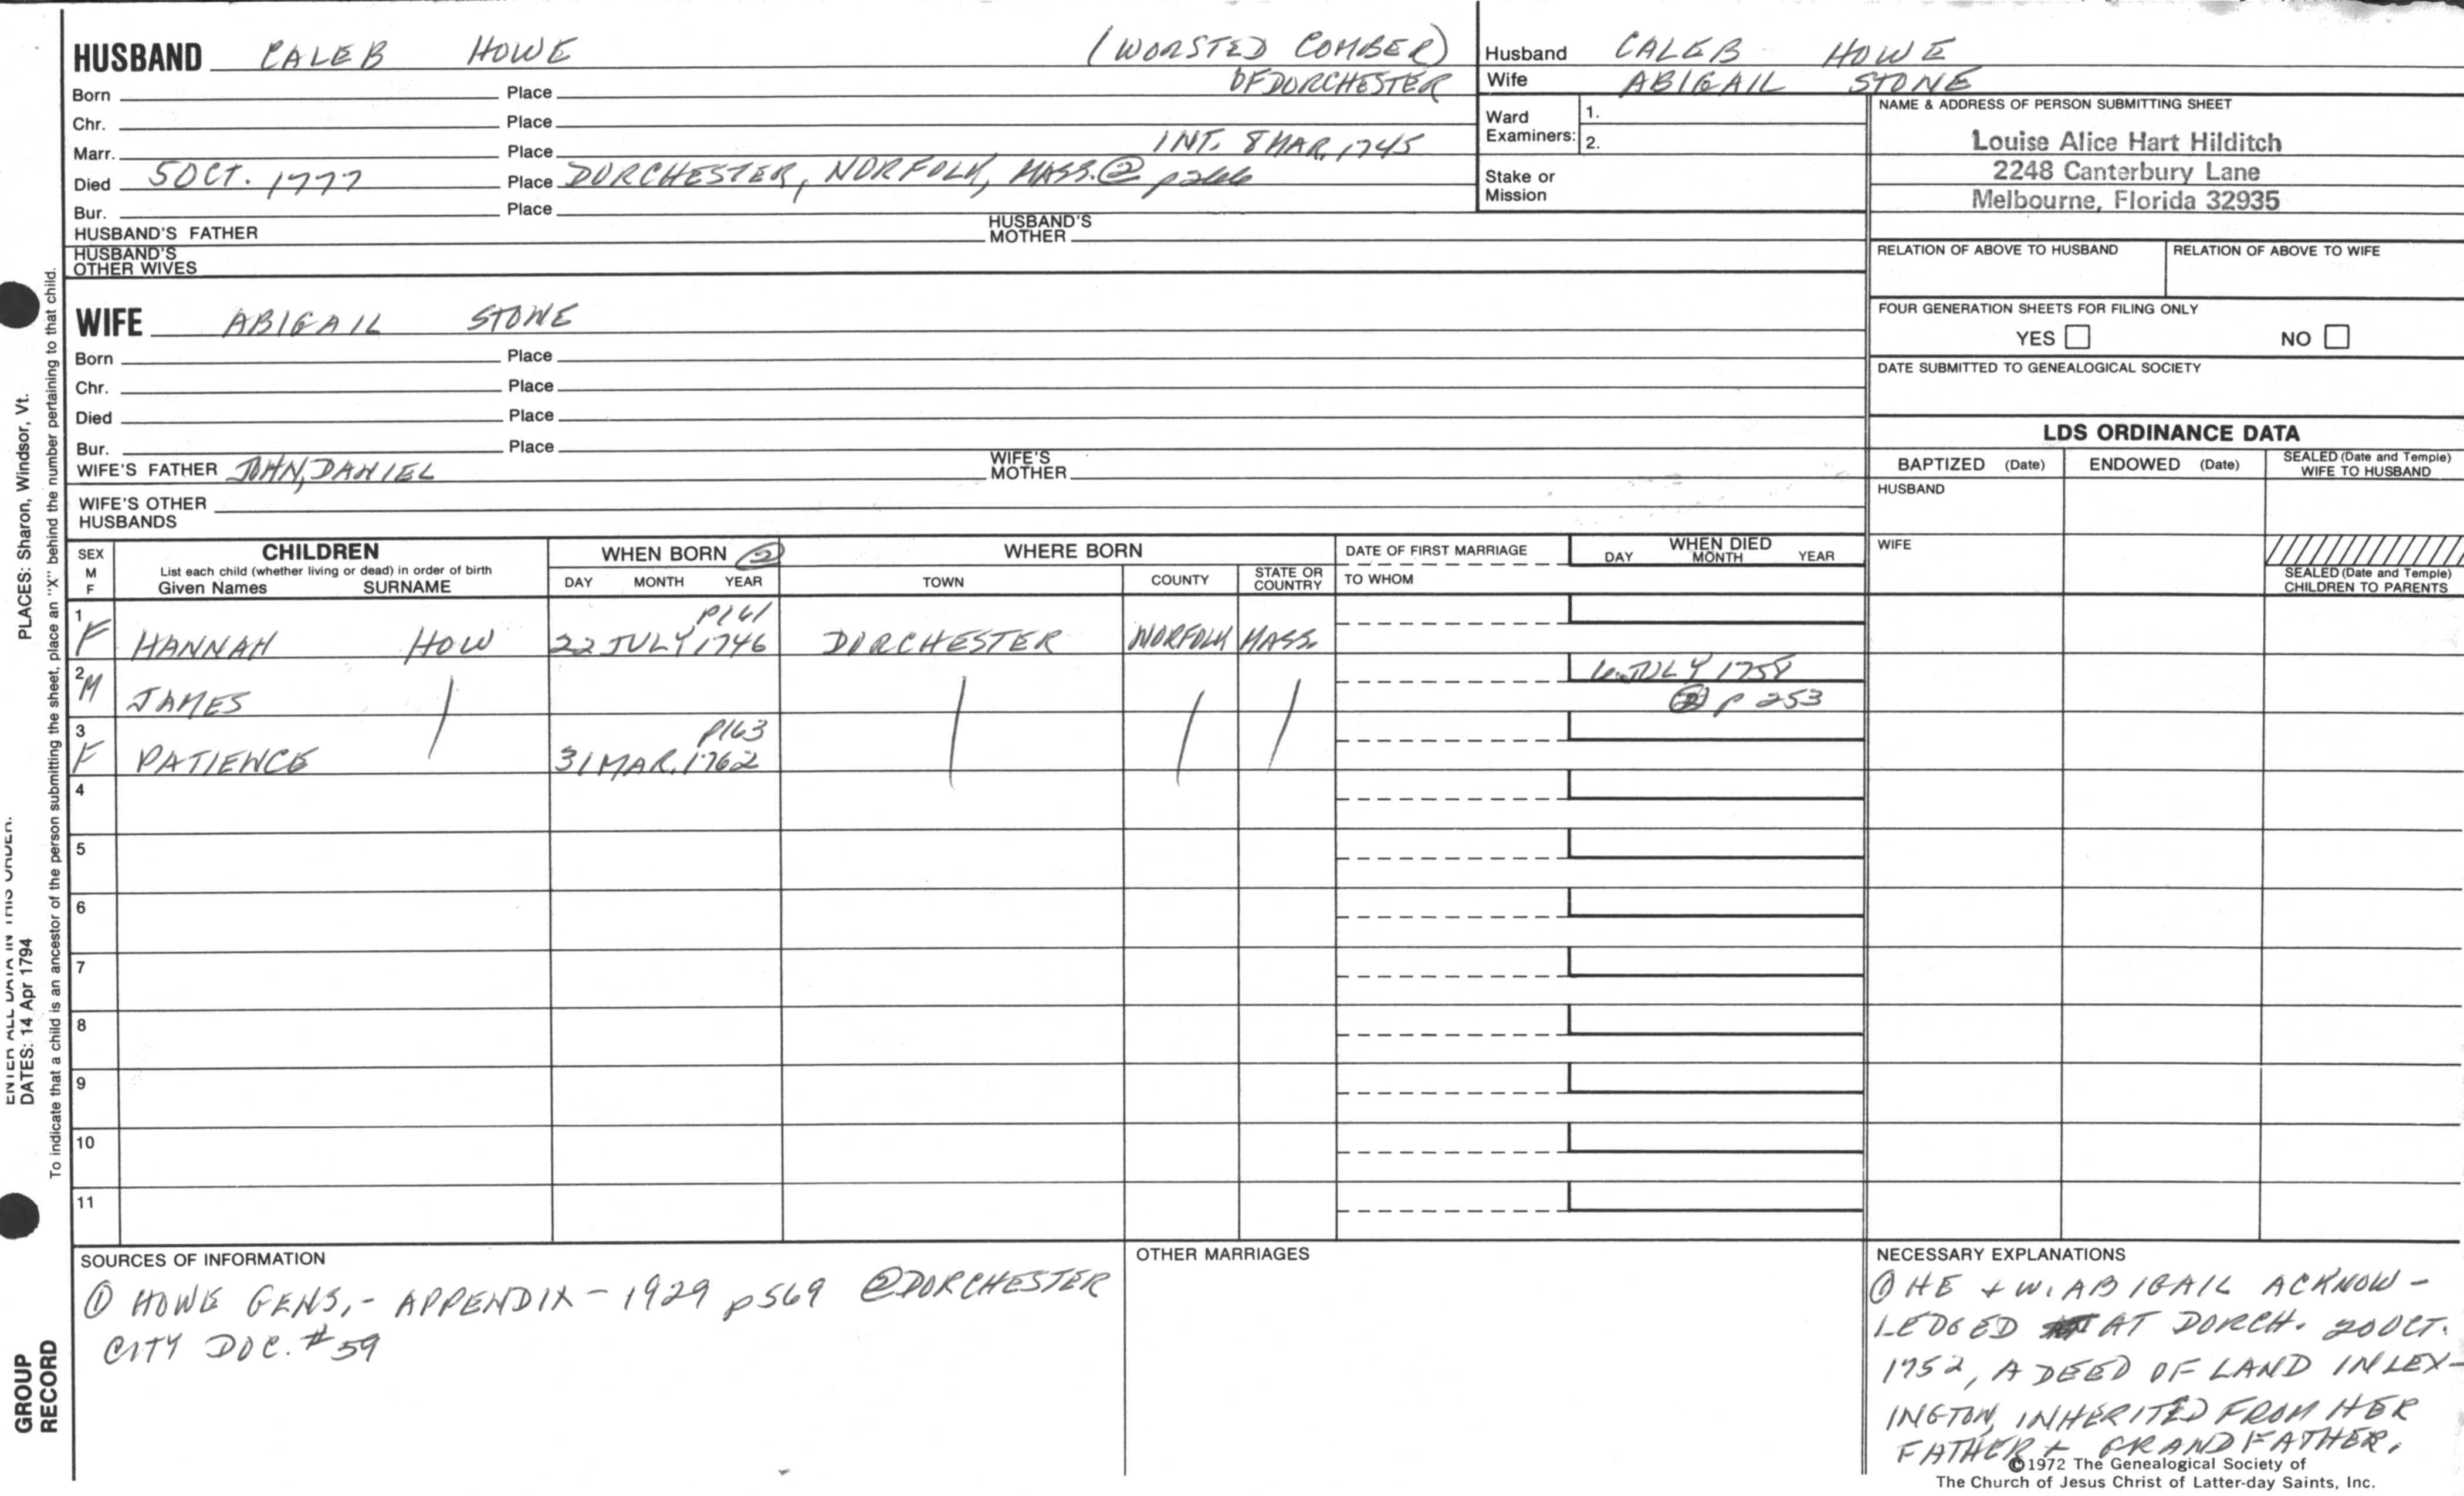 HUSBAND CALEB HOWE (WORSTED COMBER)
OF DORCHESTER
Born Place
Chr. Place
Marr. Place INT. 8 MAR, 1745
Died 5 OCT. 1777 Place DORCHESTER, NORFOLK, MASS. ② p266
Bur. Place
HUSBAND'S FATHER HUSBAND'S MOTHER
HUSBAND'S OTHER WIVES
WIFE ABIGAIL STONE
Born Place
Chr. Place
Died Place
Bur. Place
WIFE'S FATHER JOHN, DANIEL WIFE'S MOTHER
WIFE'S OTHER HUSBANDS
Husband CALEB HOWE
Wife ABIGAIL STONE
Ward Examiners: 1.
2.
Stake or Mission
NAME & ADDRESS OF PERSON SUBMITTING SHEET
Louise Alice Hart Hilditch
2248 Canterbury Lane
Melbourne, Florida 32935
RELATION OF ABOVE TO HUSBAND RELATION OF ABOVE TO WIFE
FOUR GENERATION SHEETS FOR FILING ONLY
YES NO
DATE SUBMITTED TO GENEALOGICAL SOCIETY
LDS ORDINANCE DATA
BAPTIZED (Date) ENDOWED (Date) SEALED (Date and Temple) WIFE TO HUSBAND
HUSBAND
WIFE
SEALED (Date and Temple) CHILDREN TO PARENTS
SEX M F CHILDREN WHEN BORN ② WHERE BORN DATE OF FIRST MARRIAGE WHEN DIED
List each child (whether living or dead) in order of birth
Given Names SURNAME DAY MONTH YEAR TOWN COUNTY STATE OR COUNTRY TO WHOM DAY MONTH YEAR
1 p161
F HANNAH HOW 22 JULY 1746 DORCHESTER NORFOLK MASS.
2 6 JULY 1758
M JAMES ② p 253
3 p163
F PATIENCE 31 MAR. 1762
4
5
6
7
8
9
10
11
SOURCES OF INFORMATION
① HOWE GENS, - APPENDIX - 1929 p569 ② DORCHESTER
CITY DOC. # 59
OTHER MARRIAGES
NECESSARY EXPLANATIONS
① HE + W. ABIGAIL ACKNOW-
LEDGED AT DORCH. 20 OCT.
1752, A DEED OF LAND IN LEX-
INGTON, INHERITED FROM HER
FATHER + GRANDFATHER.
©1972 The Genealogical Society of
The Church of Jesus Christ of Latter-day Saints, Inc.
To indicate that a child is an ancestor of the person submitting the sheet, place an "X" behind the number pertaining to that child.
PLACES: Sharon, Windsor, Vt.
ENTER ALL DATA IN THIS ORDER:
DATES: 14 Apr 1794
GROUP
RECORD